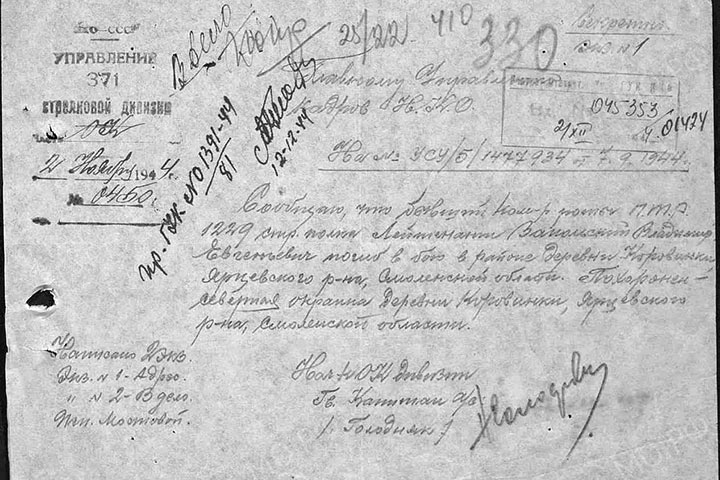 НКО-СССР
УПРАВЛЕНИЕ
371
СТРЕЛКОВОЙ ДИВИЗИИ
ОК
2 Ноября 1944 г.
№ 0450.
В дело
25/22 410
330
Секретно
Экз №1
Главному Управлению
Кадров Н.К.О.
045353
2/XII 4 01424
На № УСУ/5/1477934 от 7.9.1944.
пр. ГУК №01391-44
81
12-12-44
Сообщаю, что бывший ком-р роты П.Т.Р.
1229 стр. полка Лейтенант Запольский Владимир
Евгеньевич погиб в бою в районе деревни Коровинки
Ярцевского р-на, Смоленской области. Похоронен -
северная окраина деревни Коровинки, Ярцевского
р-на, Смоленской области.
Напечано 2 экз.
Экз. №1 - Адрес.
" № 2 - В дело.
Исп. Мостовой.
Нач-к ОК Дивизии
Гв. Капитан а/с
/. Голодняк /